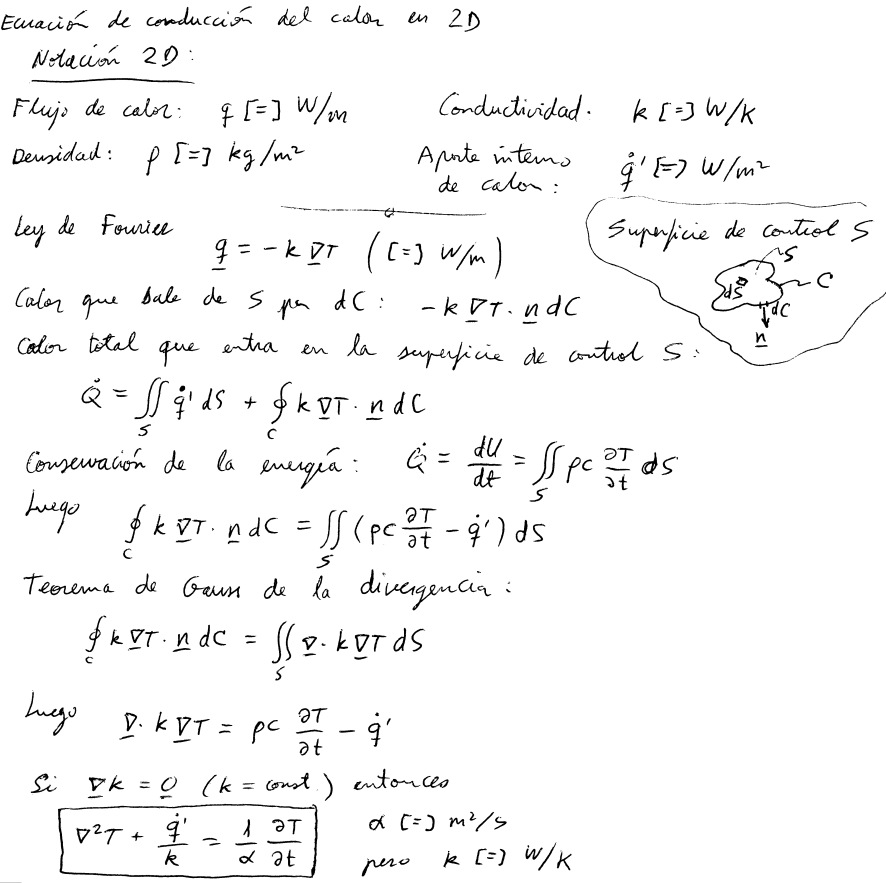 Ecuación de conducción del calor en 2D
Notación 2D:
Flujo de calor: q [=] W/m Conductividad. k [=] W/K
Densidad: ρ [=] kg/m² Aporte interno de calor: q̇' [=] W/m²
Superficie de control S
S
dS
C
dC
n
Ley de Fourier
q = -k ∇T ([=] W/m)
Calor que sale de S por dC: -k ∇T · n dC
Calor total que entra en la superficie de control S:
Q̇ = ∬_S q̇' dS + ∮_C k ∇T · n dC
Conservación de la energía: Q̇ = dU/dt = ∬_S ρc ∂T/∂t dS
Luego ∮_C k ∇T · n dC = ∬_S (ρc ∂T/∂t - q̇') dS
Teorema de Gauss de la divergencia:
∮_C k ∇T · n dC = ∬_S ∇ · k ∇T dS
Luego ∇ · k ∇T = ρc ∂T/∂t - q̇'
Si ∇k = 0 (k = const.) entonces
∇²T + q̇'/k = 1/α ∂T/∂t
α [=] m²/s
pero k [=] W/K